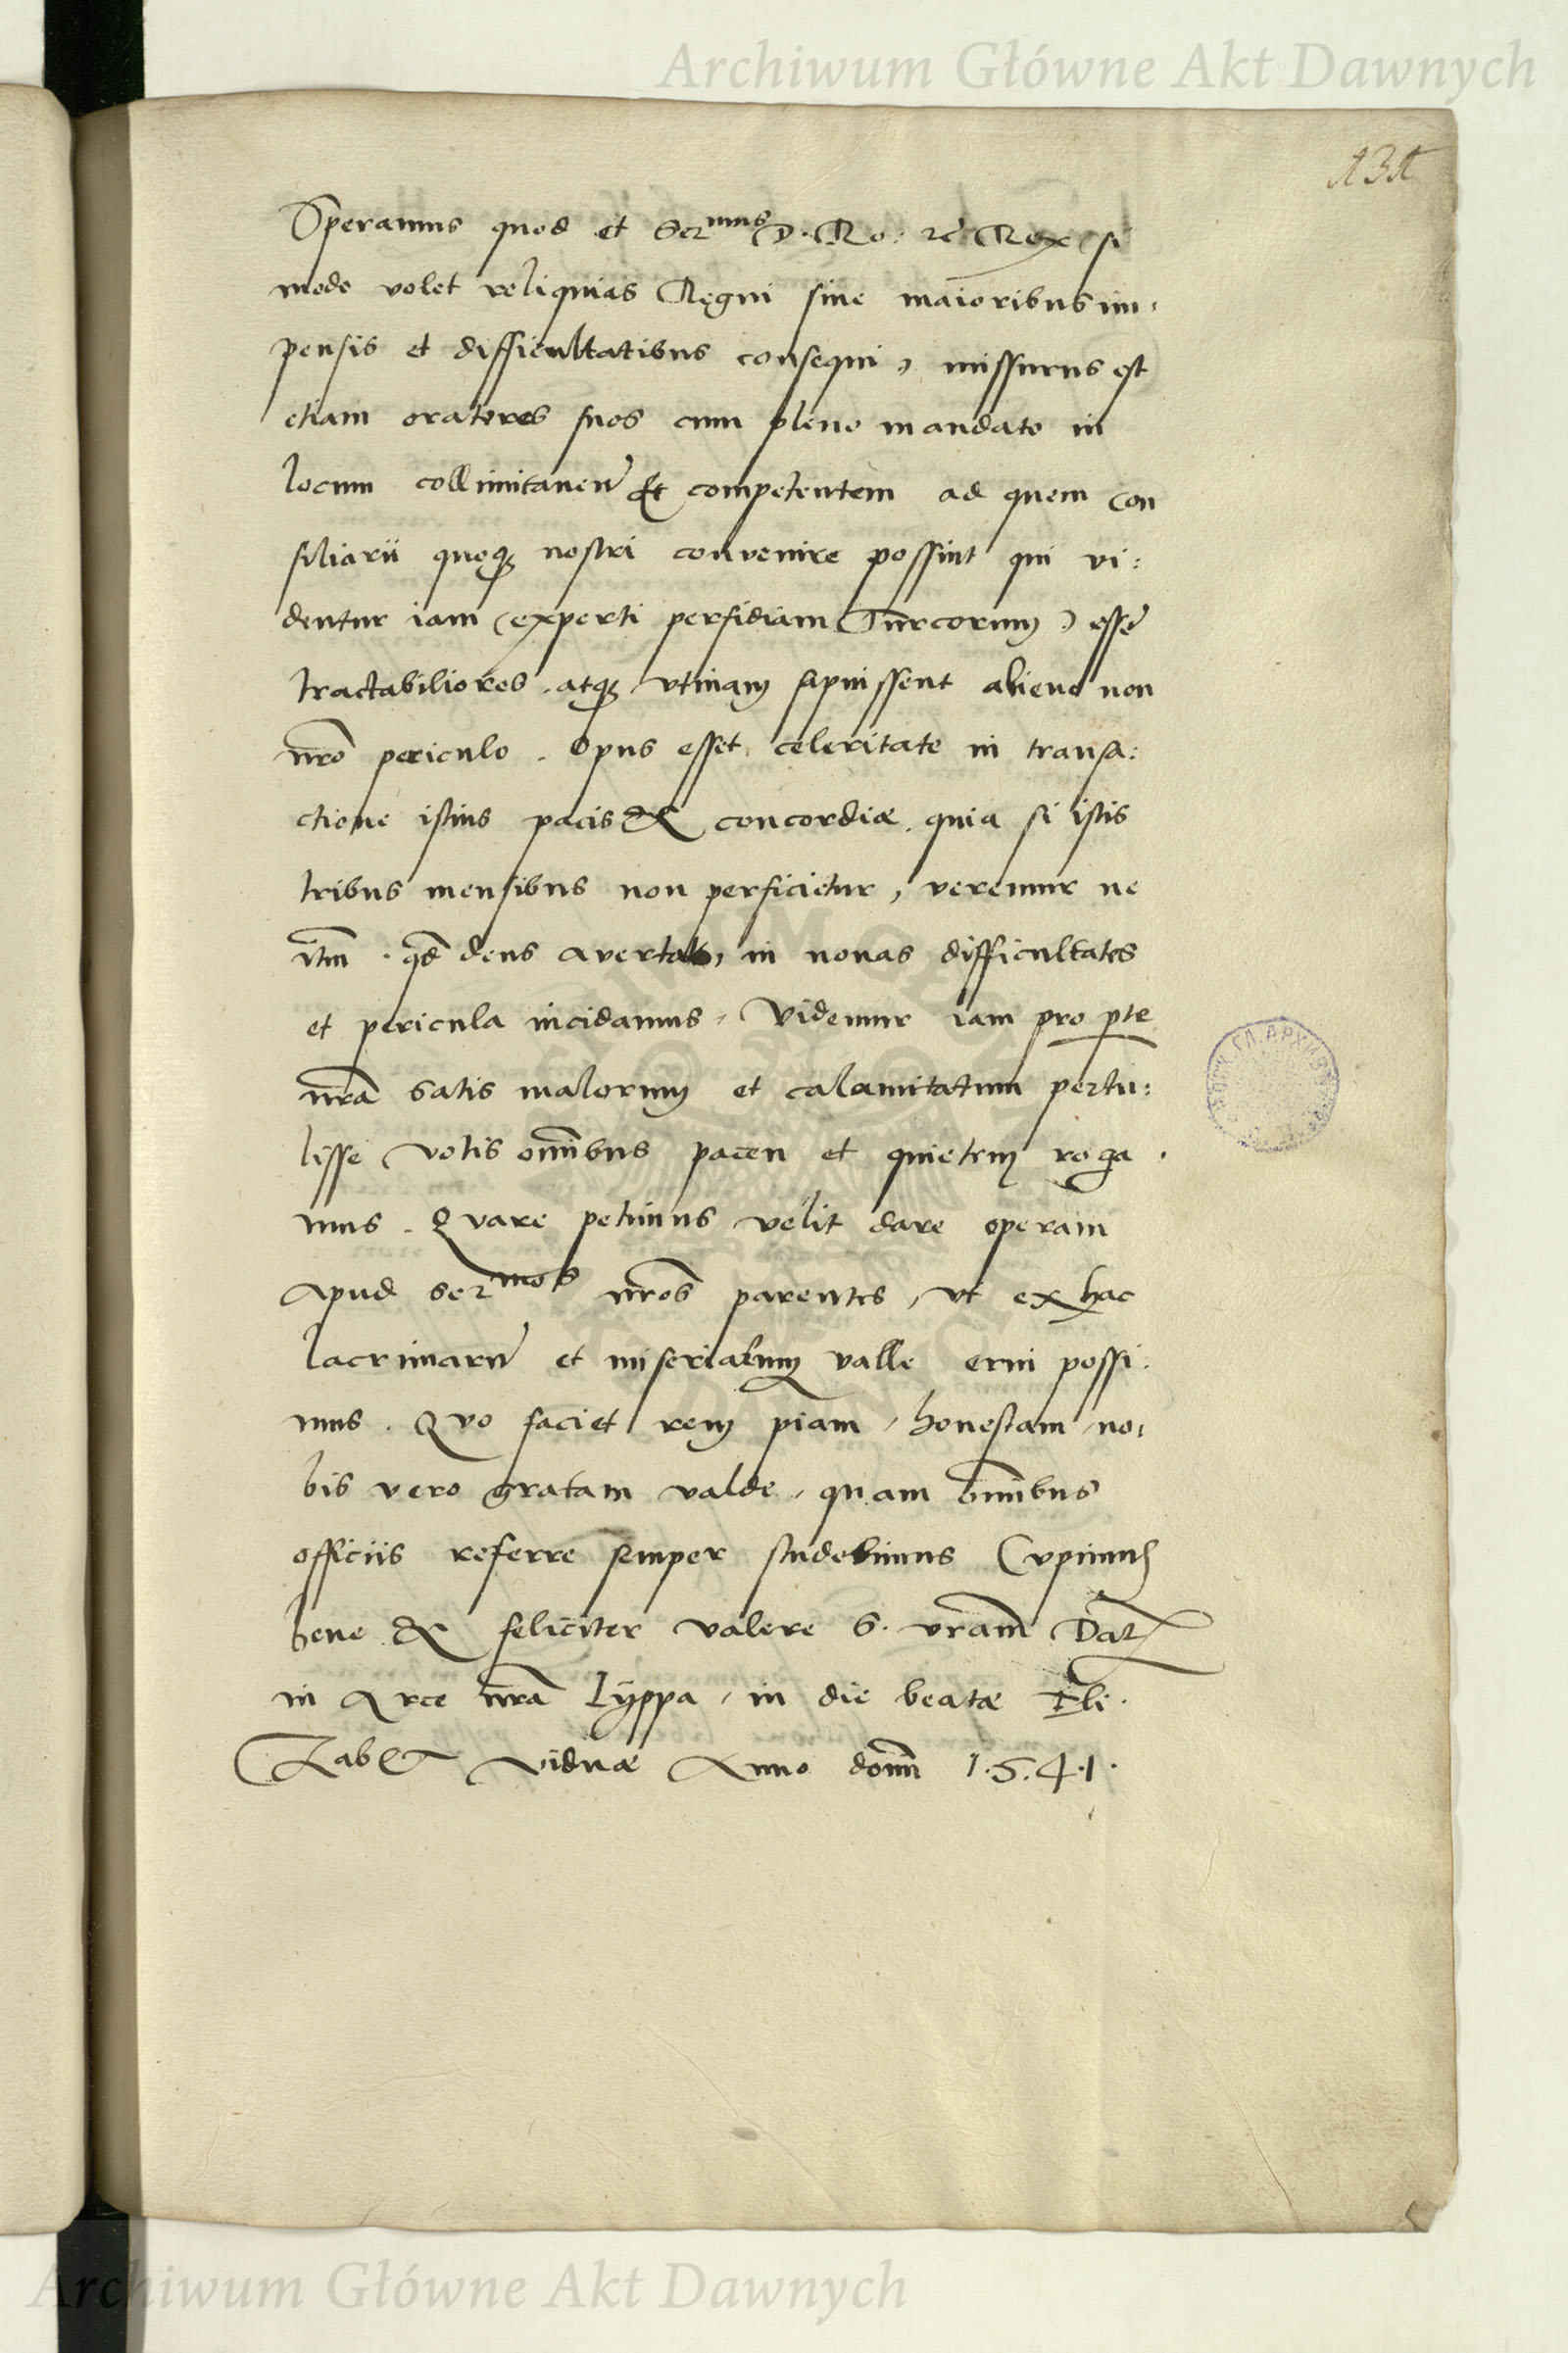 Archiwum Główne Akt Dawnych
131
Speramus quod et Ser^mus D. Ro: rc̃ Rex si
modo volet reliquias Regni sine maioribus im,
pensis et difficultatibus consequi, missurus est
etiam oratores suos cum pleno mandato in
locum collimitaneũ & competentem ad quem con
siliarii quoqꝫ nostri convenire possint qui vi:
dentur iam (experti perfidiam Turcorum) esse
tractabiliores. atqꝫ vtinam sapuissent alieno non
nr̃o periculo. Opus esset celeritate in transa:
ctione istius pacis & concordiæ. quia si istis
tribus mensibus non perficietur, veremur ne
itm̃. qd̃ deus avertat, in nouas difficultates
et pericula incidamus, Videmur iam pro pte
nr̃a satis malorum et calamitatum pertu:
lisse votis om̃ibus pacem et quietem roga.
mus. Quare petimus velit dare operam
apud ser^mos nr̃os parentes, vt ex hac
lacrimarũ et miseriarum valle erui possi.
mus. Quo faciet rem piam, honestam, no:
bis vero gratam valde, quam om̃ibus
officiis referre semper studebimus Cupimus
bene & feliciter valere S. vr̃am Datꝫ
in Arce nr̃a Lyppa, in die beatæ Eli.
zabet viduæ Anno domĩ 1.5.4.1.
Archiwum Główne Akt Dawnych